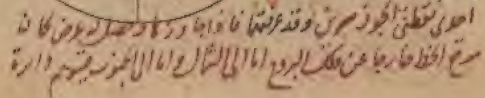 احدى نقطتى الجوزهرين وقد عرفتها فاذا جاوزها وحصل له عرض كان
مركزه خارجا عن فلك البروج اما الى الشمال واما الى الجنوب فيتوهم دائرة